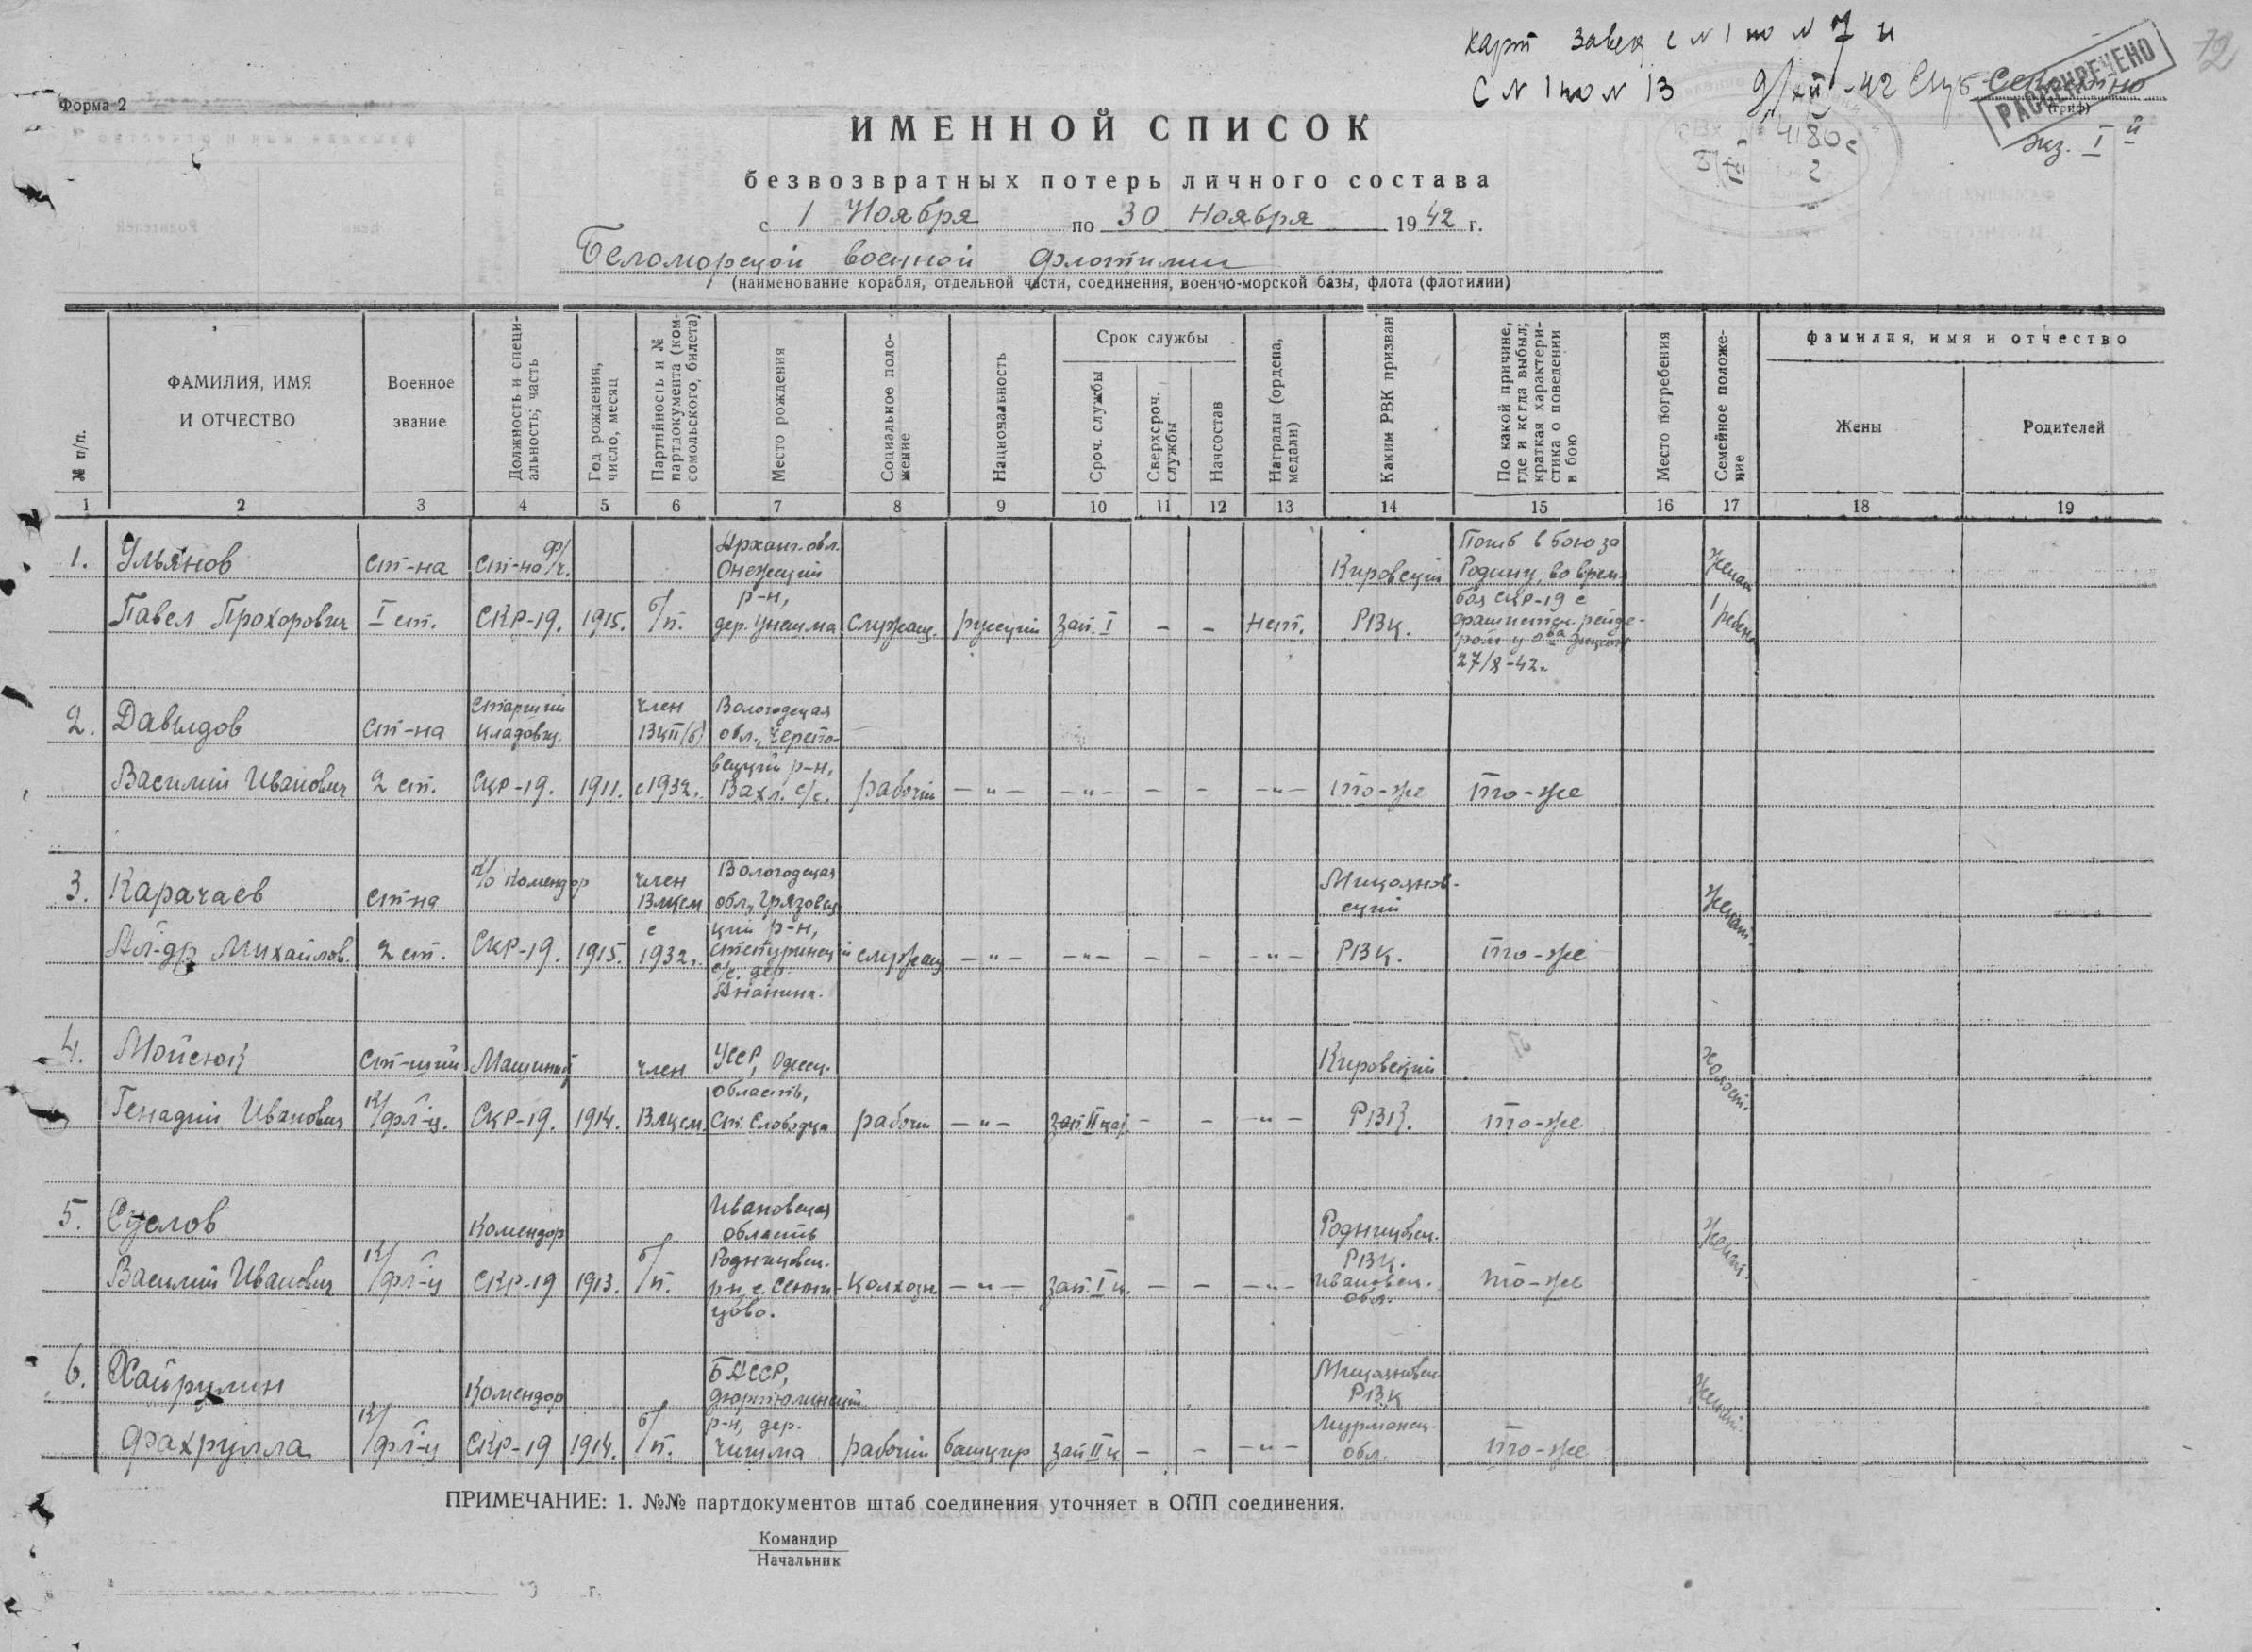 карт завед с №1 по №7 и
с №1 по №13 9/XII-42
72
Форма 2
Секретно
(гриф)
РАССЕКРЕЧЕНО
экз. I й
4180с
ИМЕННОЙ СПИСОК
безвозвратных потерь личного состава
с 1 Ноября по 30 Ноября 1942 г.
Беломорской военной флотилии
(наименование корабля, отдельной части, соединения, военно-морской базы, флота (флотилии)
№ п/п.
ФАМИЛИЯ, ИМЯ
И ОТЧЕСТВО
Военное
звание
Должность и специ-
альность; часть
Год рождения,
число, месяц
Партийность и №
партдокумента (ком-
сомольского, билета)
Место рождения
Социальное поло-
жение
Национальность
Срок службы
Сроч. службы
Сверхсроч.
службы
Начсостав
Награды (ордена,
медали)
Каким РВК призван
По какой причине,
где и когда выбыл;
краткая характери-
стика о поведении
в бою
Место погребения
Семейное положе-
ние
фамилия, имя и отчество
Жены
Родителей
1 2 3 4 5 6 7 8 9 10 11 12 13 14 15 16 17 18 19
1.
Ульянов
Павел Прохорович
ст-на
I ст.
ст-на ф/ч.
СКР-19.
1915.
б/п.
Арханг. обл.
Онежский
р-н,
дер. Унешма
Служащ.
русский
зап. I
– –
нет.
Кировский
РВК.
Погиб в бою за
Родину, во время
боя СКР-19 с
фашистск. рейде-
ром у о-ва Диксон
27/8-42г.
Женат
1 ребен.
2.
Давыдов
Василий Иванович
ст-на
2 ст.
старший
кладовщ.
СКР-19.
1911.
член
ВКП(б)
с 1932г.
Вологодская
обл., Черепо-
вецкий р-н,
Вахл. с/с.
рабочий
–"– –"– – – –"–
то-же
то-же
3.
Карачаев
Ал-др Михайлов.
ст-на
2 ст.
к/о Комендор
СКР-19.
1915.
член
ВЛКСМ
с
1932г.
Вологодская
обл., Грязовец-
кий р-н,
с/с. дер.
Ананина.
служащ
–"– –"– – – –"–
Микоянов-
ский
РВК.
то-же
Женат.
4.
Мойсюк
Генадий Иванович
ст-ший
к/фл-ц.
Машинист
СКР-19.
1914.
член
ВЛКСМ
УССР, Одесск.
область,
ст. Слободка
рабочий
–"–
зап. II кат
– – –"–
Кировский
РВК.
то-же
холост.
5.
Суслов
Василий Иванович
к/фл-ц
Комендор
СКР-19
1913.
б/п.
Ивановская
область
Родниковск.
р-н, с. Сенни-
ково.
колхозн.
–"–
зап. I к.
– – –"–
Родниковск.
РВК.
Ивановск.
обл.
то-же
Женат.
6.
Хайрулин
Фахрулла
к/фл-ц
Комендор
СКР-19
1914.
б/п.
БАССР,
Дюртюлинский
р-н, дер.
Чишма
рабочий
башкир
зап II к
– – –"–
Микояновск
РВК
Мурманск.
обл.
то-же
Женат.
ПРИМЕЧАНИЕ: 1. №№ партдокументов штаб соединения уточняет в ОПП соединения.
Командир
Начальник